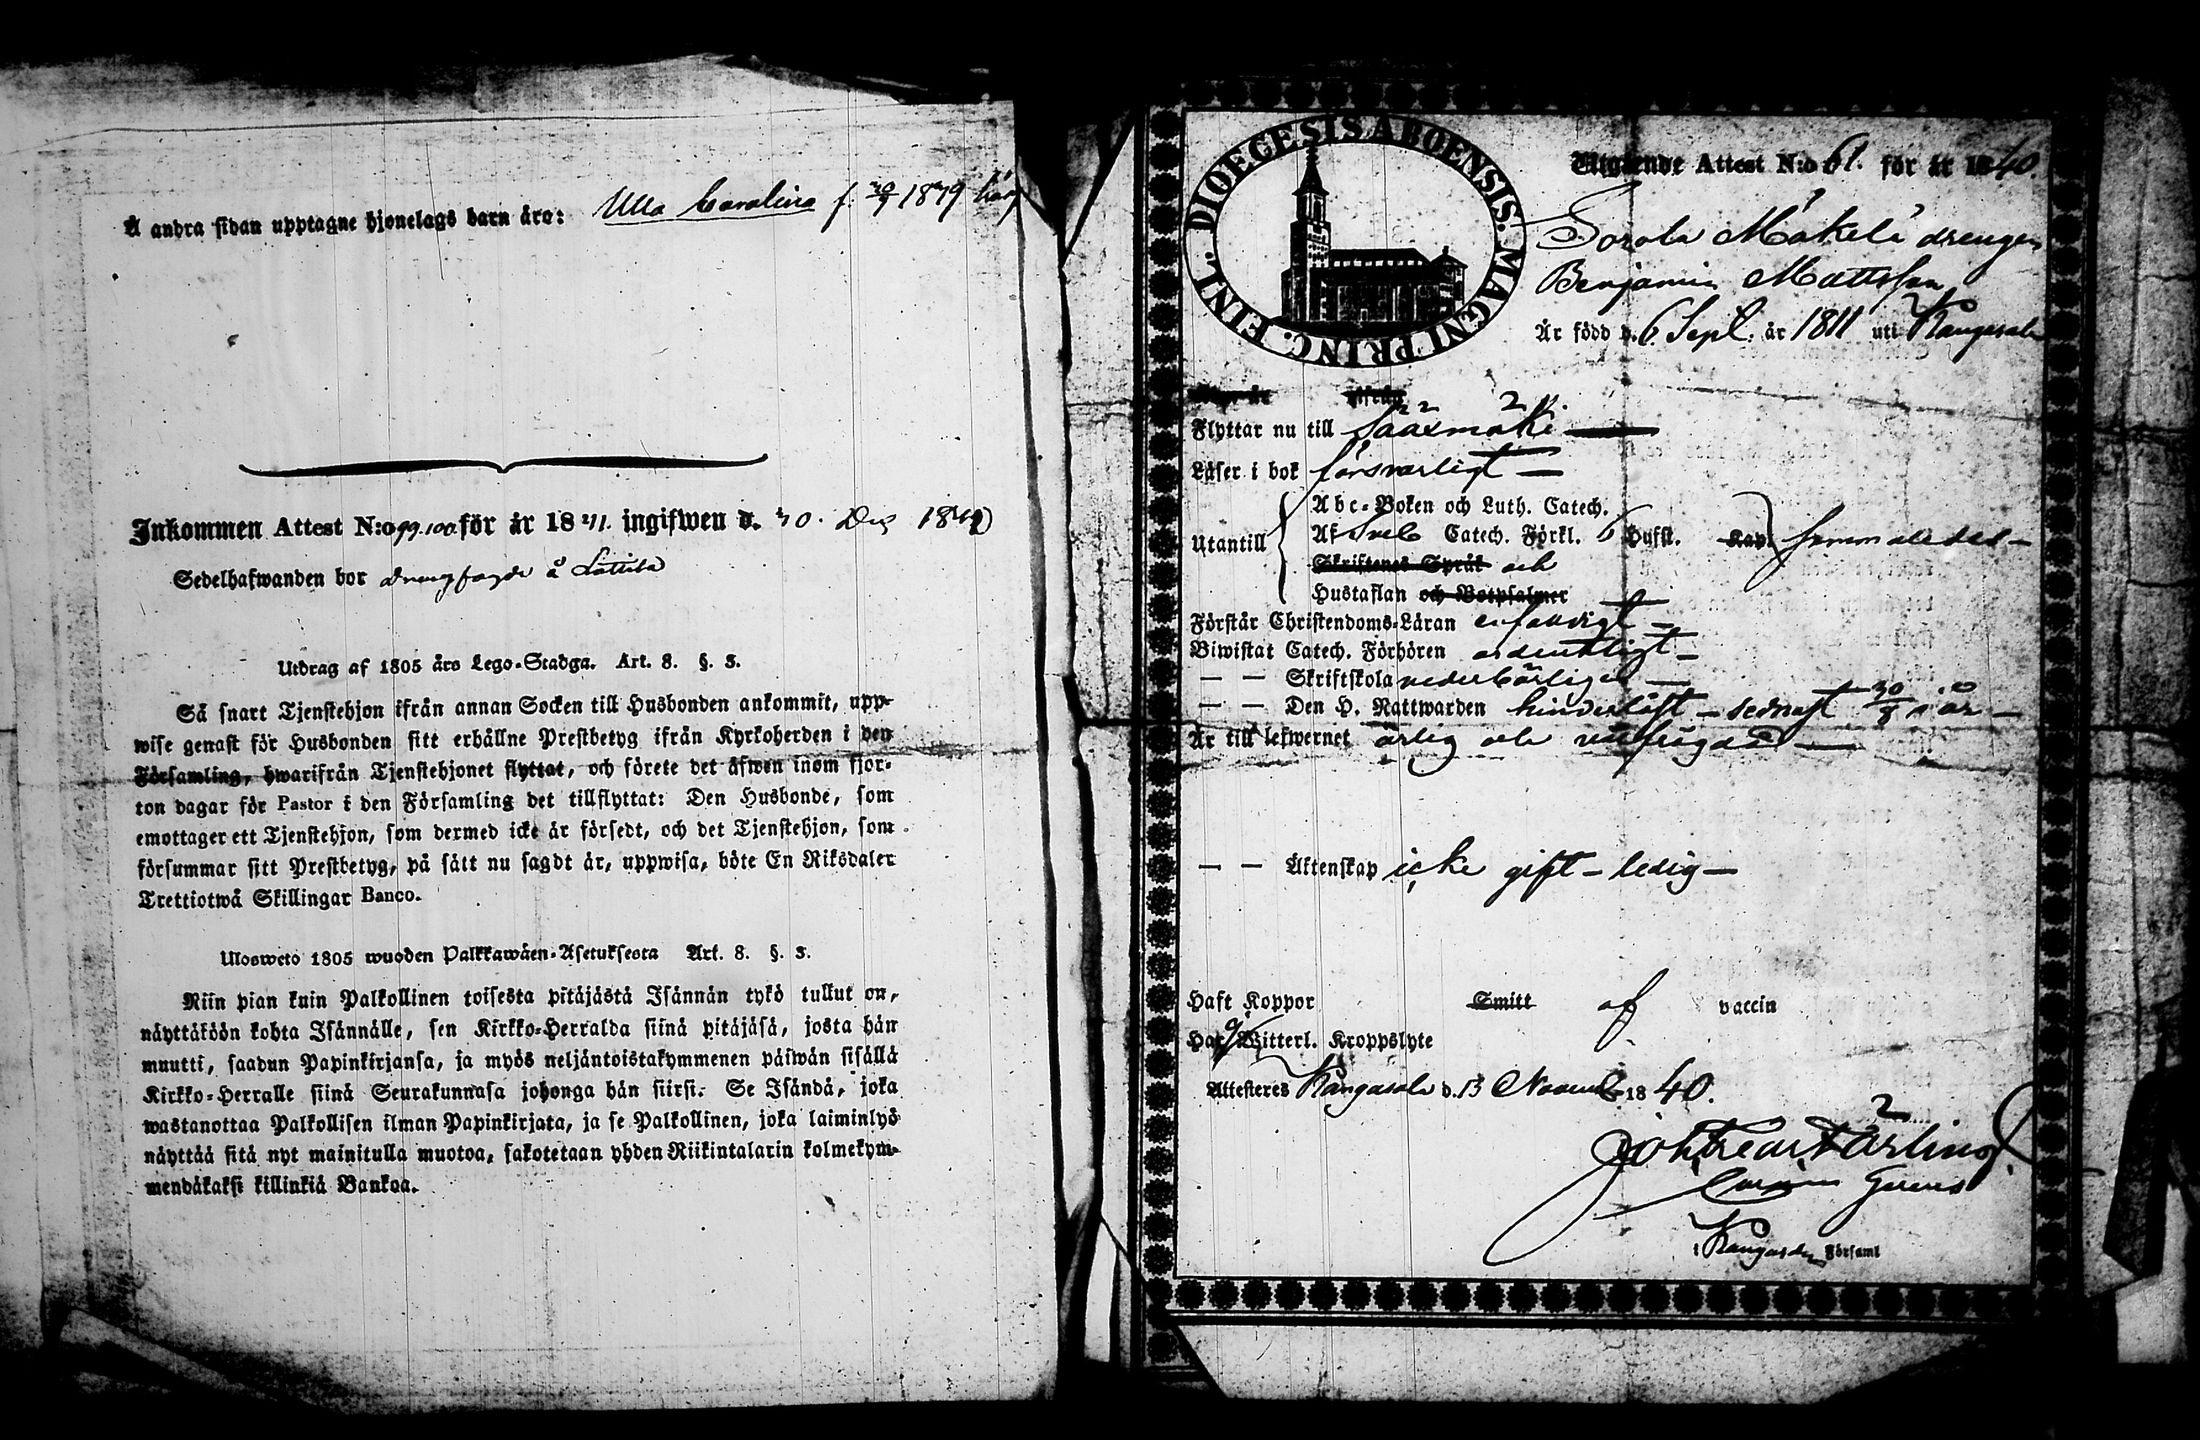 Å andra sidan upptagne hjonelags barn äro: Ulla Carolina f. 1839
Inkommen Attest N:o 99.100. för år 1841. ingifwen d. 30. Dec 1840
Sedelhafwanden bor å
Utdrag af 1805 års Lego-Stadga. Art. 8. §. 3.
Så snart Tjenstehjon ifrån annan Socken till Husbonden ankommit, upp-
wise genast för Husbonden sitt erhållne Prestbetyg ifrån Kyrkoherden i den
Församling, hwarifrån Tjenstehjonet flyttat, och förete det äfwen inom fjor-
ton dagar för Pastor i den Församling det tillflyttat: Den Husbonde, som
emottager ett Tjenstehjon, som dermed icke är försedt, och det Tjenstehjon, som
försummar sitt Prestbetyg, på sätt nu sagdt är, uppwisa, böte En Riksdaler
Trettiotwå Skillingar Banco.
Ulosweto 1805 wuoden Palkkawäen-Asetuksesta Art. 8. §. 3.
Niin pian kuin Palkollinen toisesta pitäjästä Isännän tykö tullut on,
näyttäköön kohta Isännälle, sen Kirkko-Herralda siinä pitäjäsä, josta hän
muutti, saadun Papinkirjansa, ja myös neljäntoistakymmenen päiwän sisällä
Kirkko-Herralle siinä Seurakunnasa johonga hän siirsi. Se Isändä, joka
wastanottaa Palkollisen ilman Papinkirjata, ja se Palkollinen, joka laiminlyö
näyttää sitä nyt mainitulla muotoa, sakotetaan yhden Riikintalarin kolmekym-
mendäkaksi killinkiä Bankoa.
DIOECESIS ABOENSIS. MAGNI PRINC. FINL.
Utgående Attest N:o 61. för år 1840.
Sorola Mäkelä drengen
Benjamin Mattsson
Är född d. 6 Sept. år 1811 uti Kangasala
Flyttar nu till Sääxmäki
Läser i bok försvarligt
Abc-Boken och Luth. Catech.
Utantill Af Sveb Catech. Förkl. 6 Hufst. Kap. sammaledes
Skriftenes Språk och
Hustaflan och Botpsalmer
Förstår Christendoms-Läran enfaldigt
Biwistat Catech. Förhören ordentligt
— — Skriftskola vederbörligen
— — Den H. Nattwarden hinderlöst - sednast 30/8 i år
Är till lefwernet ärlig och
— — Äktenskap icke gift - ledig
Haft Koppor Smitt af vaccin
Har Witterl. Kroppslyte
Attesteres Kangasala d. 13 Novemb 1840.
i Kangasala Församl